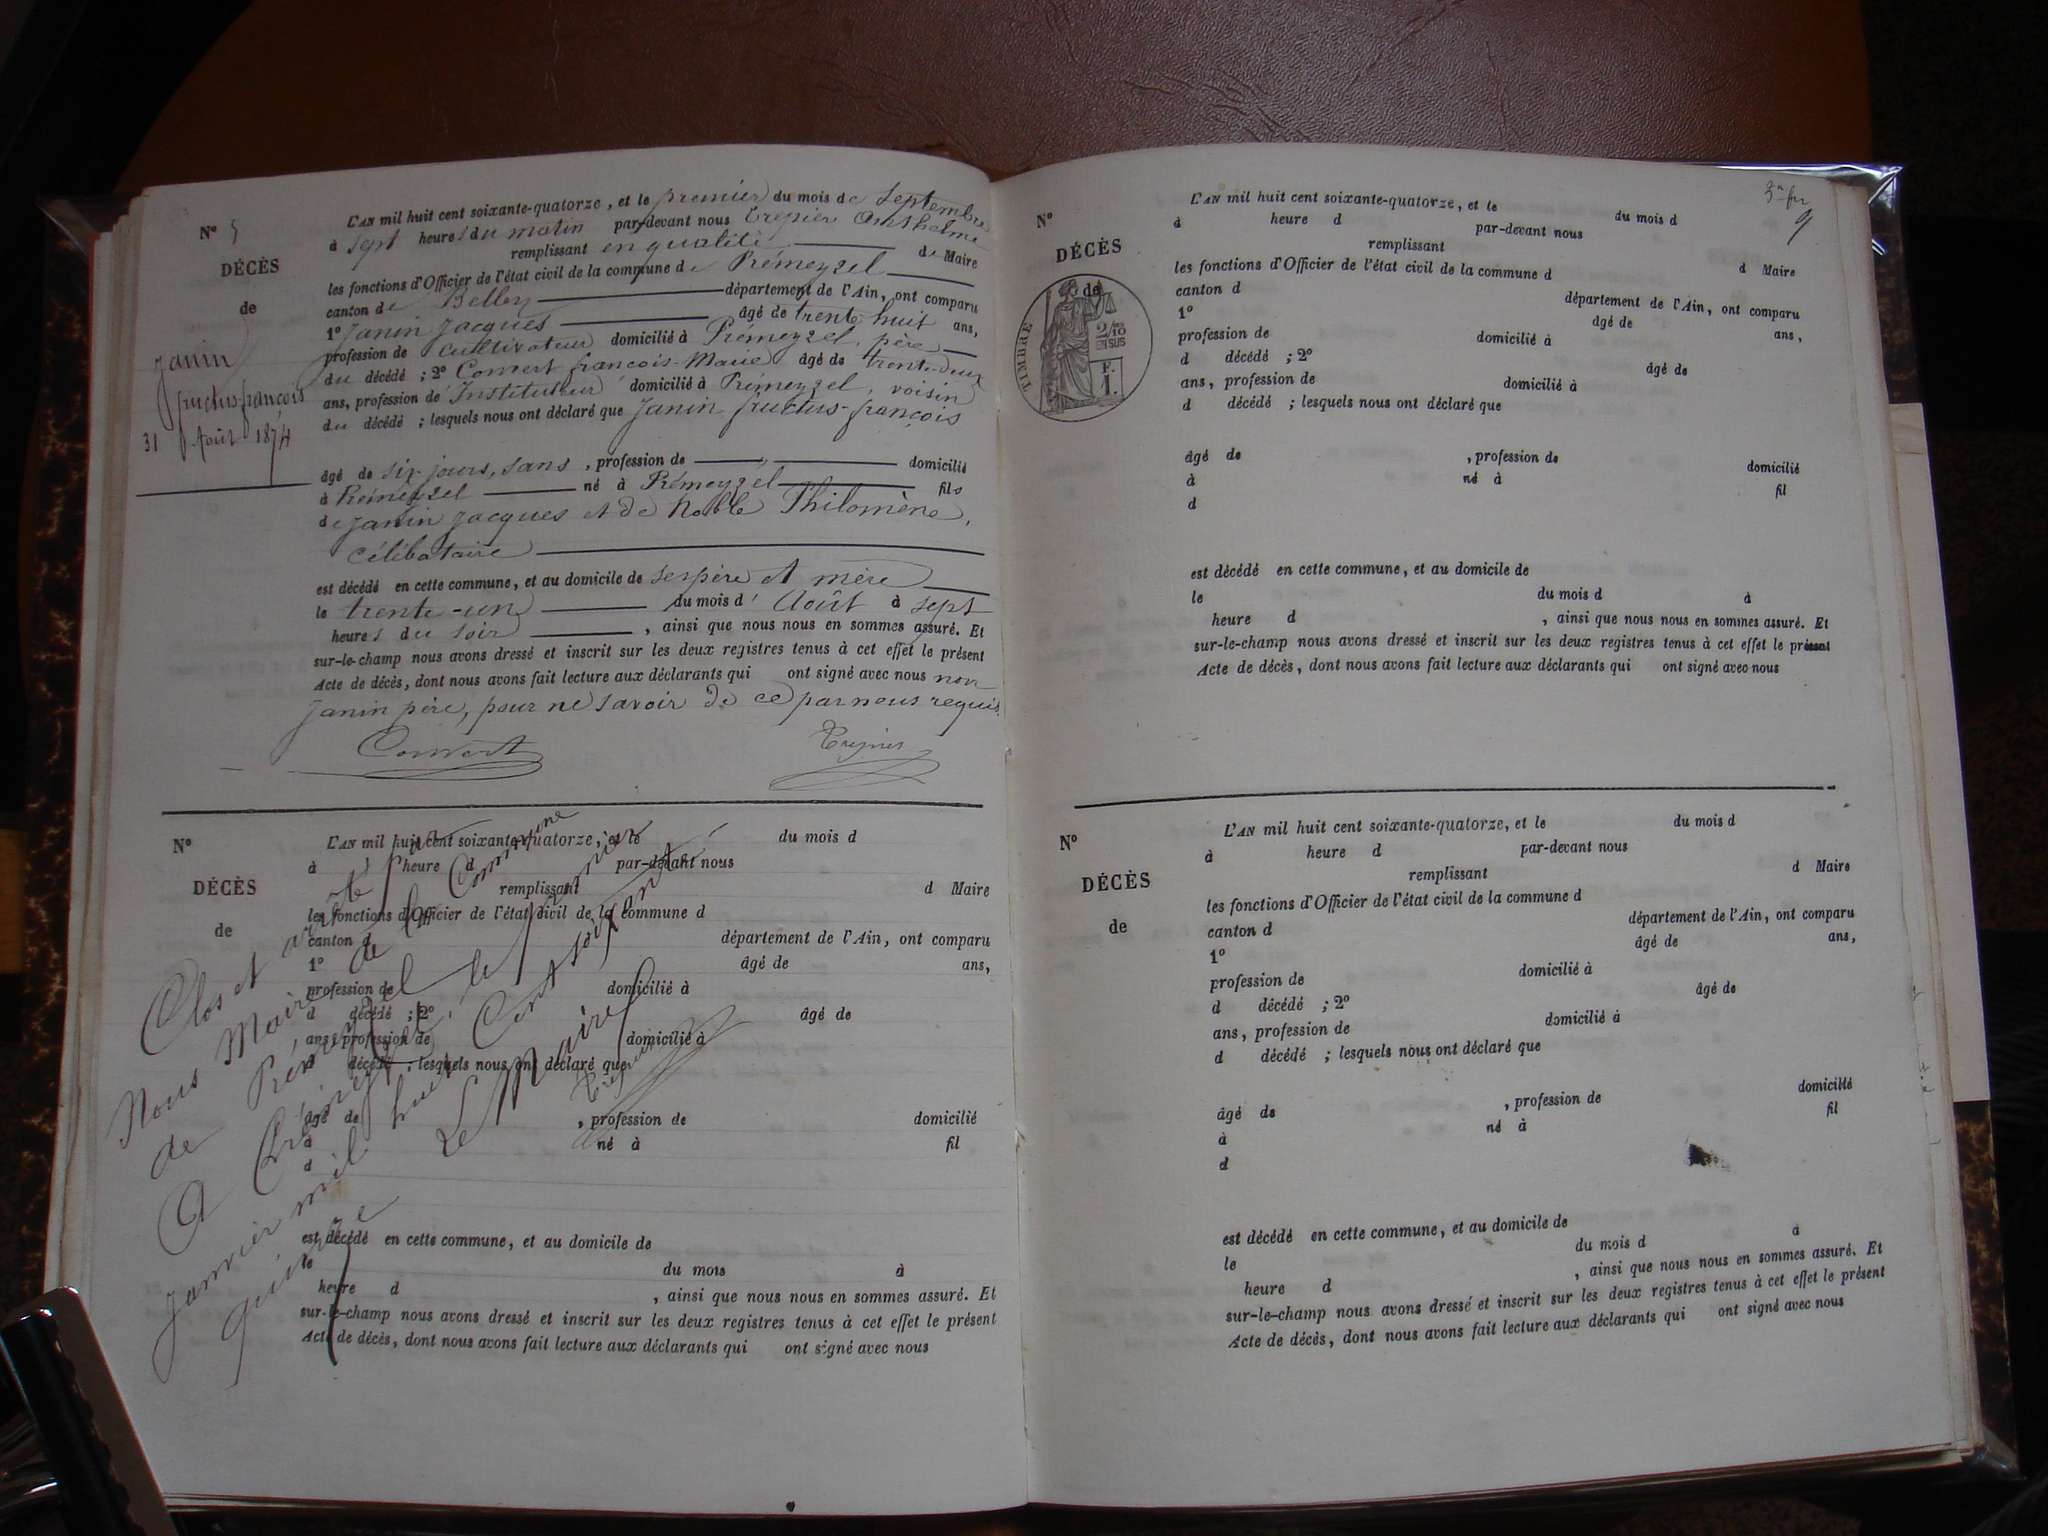 N° 5
DÉCÈS
de
Janin
fructus-françois
31 Août 1874
L'AN mil huit cent soixante-quatorze, et le premier du mois de Septembre
à sept heures du matin par-devant nous Trepier Anthelme
remplissant en qualité de Maire
les fonctions d'Officier de l'état civil de la commune de Prémeyzel
canton de Belley département de l'Ain, ont comparu
1° Janin Jacques âgé de trente-huit ans,
profession de Cultivateur domicilié à Prémeyzel, père
du décédé ; 2° Convert françois-Marie âgé de trente-deux
ans, profession de Instituteur domicilié à Prémeyzel, voisin
du décédé ; lesquels nous ont déclaré que Janin fructus-françois
âgé de six jours, sans , profession de domicilié
à Prémeyzel né à Prémeyzel fils
de Janin Jacques et de Noble Philomène,
célibataire
est décédé en cette commune, et au domicile de ses père et mère
le trente-un du mois d' Août à sept
heures du soir , ainsi que nous nous en sommes assuré. Et
sur-le-champ nous avons dressé et inscrit sur les deux registres tenus à cet effet le présent
Acte de décès, dont nous avons fait lecture aux déclarants qui ont signé avec nous non
Janin père, pour ne savoir de ce par nous requis.
Convert Trepier
N°
DÉCÈS
de
L'AN mil huit cent soixante-quatorze, et le du mois d
à heure d par-devant nous
remplissant d Maire
les fonctions d'Officier de l'état civil de la commune d
canton d département de l'Ain, ont comparu
1° âgé de ans,
profession de domicilié à
d décédé ; 2° âgé de
ans, profession de domicilié à
d décédé ; lesquels nous ont déclaré que
âgé de , profession de domicilié
à né à fil
d
est décédé en cette commune, et au domicile de
le du mois d à
heure d , ainsi que nous nous en sommes assuré. Et
sur-le-champ nous avons dressé et inscrit sur les deux registres tenus à cet effet le présent
Acte de décès, dont nous avons fait lecture aux déclarants qui ont signé avec nous
Clos et arrêté par
Nous Maire de la Commune
de Prémeyzel
A Prémeyzel, le premier
Janvier mil huit Cent soixante
quinze
Le Maire
Trepier
9
N°
DÉCÈS
de
TIMBRE
2/10
EN SUS
F.
1.
L'AN mil huit cent soixante-quatorze, et le du mois d
à heure d par-devant nous
remplissant d Maire
les fonctions d'Officier de l'état civil de la commune d
canton d département de l'Ain, ont comparu
1° âgé de ans,
profession de domicilié à
d décédé ; 2° âgé de
ans, profession de domicilié à
d décédé ; lesquels nous ont déclaré que
âgé de , profession de domicilié
à né à fil
d
est décédé en cette commune, et au domicile de
le du mois d à
heure d , ainsi que nous nous en sommes assuré. Et
sur-le-champ nous avons dressé et inscrit sur les deux registres tenus à cet effet le présent
Acte de décès, dont nous avons fait lecture aux déclarants qui ont signé avec nous
N°
DÉCÈS
de
L'AN mil huit cent soixante-quatorze, et le du mois d
à heure d par-devant nous
remplissant d Maire
les fonctions d'Officier de l'état civil de la commune d
canton d département de l'Ain, ont comparu
1° âgé de ans,
profession de domicilié à
d décédé ; 2° âgé de
ans, profession de domicilié à
d décédé ; lesquels nous ont déclaré que
âgé de , profession de domicilié
à né à fil
d
est décédé en cette commune, et au domicile de
le du mois d à
heure d , ainsi que nous nous en sommes assuré. Et
sur-le-champ nous avons dressé et inscrit sur les deux registres tenus à cet effet le présent
Acte de décès, dont nous avons fait lecture aux déclarants qui ont signé avec nous